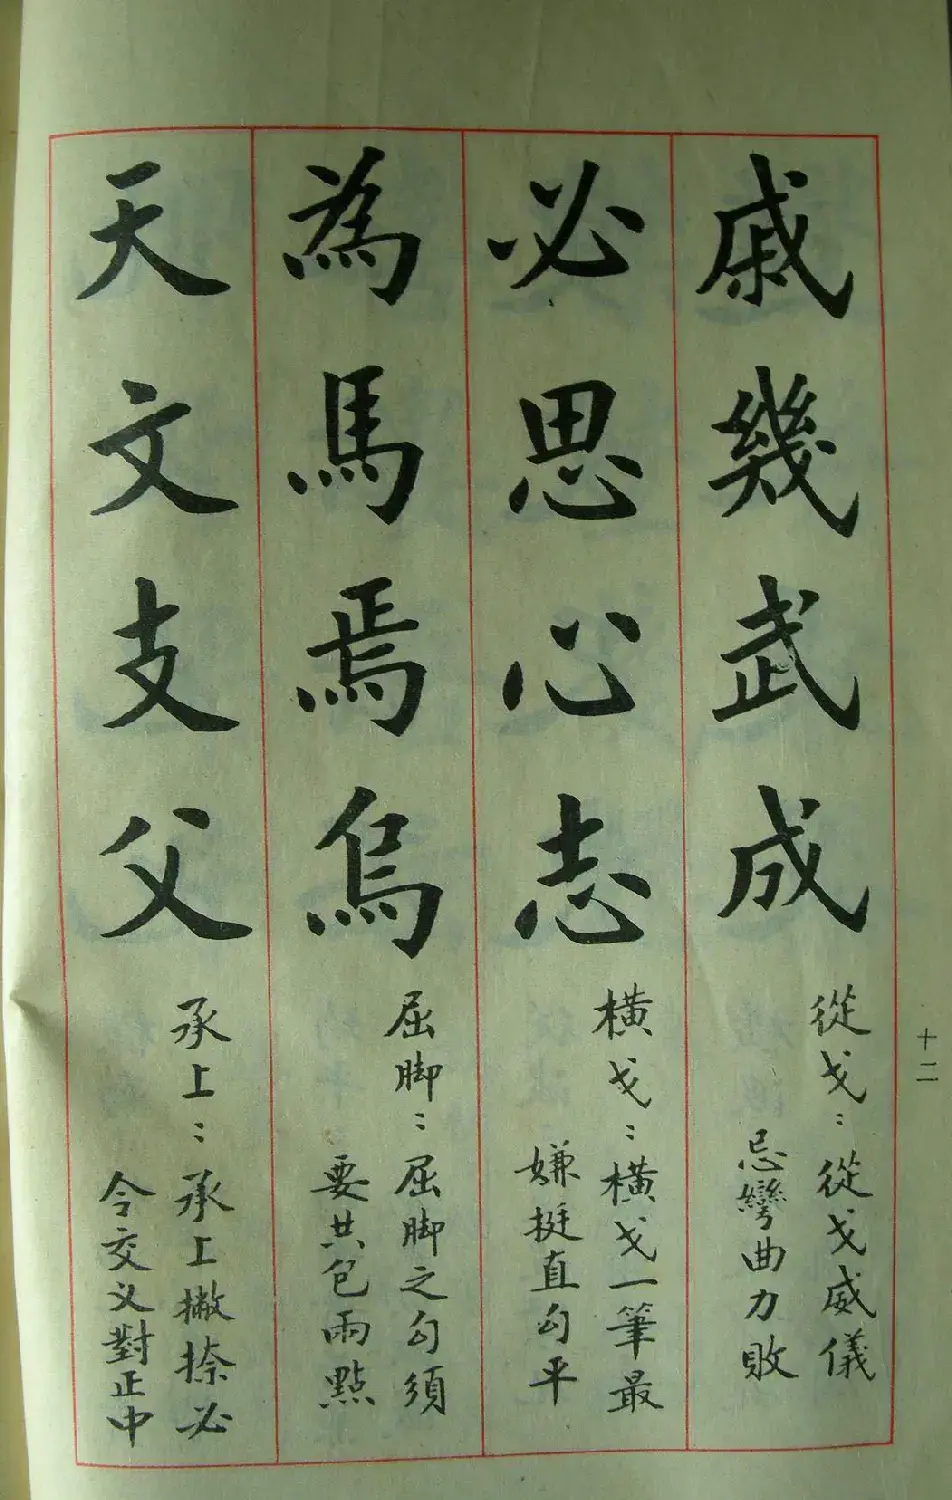 十二
戚幾武成
從戈：從戈威儀
忌彎曲力敗
必思心志
橫戈：橫戈一筆最
嫌挺直勾平
為馬焉烏
屈脚：屈脚之勾須
要共包兩點
天文支父
承上：承上撇捺必
令交叉對正中